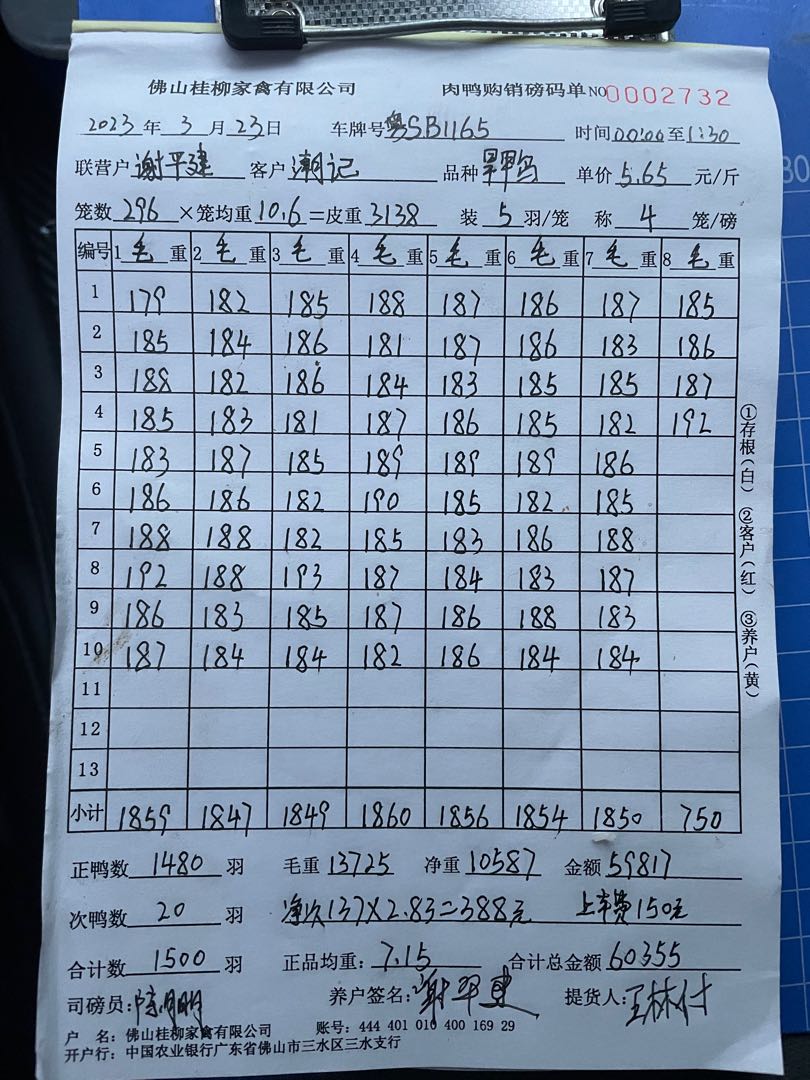 佛山桂柳家禽有限公司 肉鸭购销磅码单 NO 0002732
2023 年 3 月 23 日 车牌号 粤SB1165 时间 00:00 至 1:30
联营户 谢平建 客户 潮记 品种 单价 5.65 元/斤
笼数 296 ×笼均重 10.6 =皮重 3138 装 5 羽/笼 称 4 笼/磅
编号 1 毛 重 2 毛 重 3 毛 重 4 毛 重 5 毛 重 6 毛 重 7 毛 重 8 毛 重
1 179 182 185 188 187 186 187 185
2 185 184 186 181 187 186 183 186
3 188 182 186 184 183 185 185 187
4 185 183 181 187 186 185 182 192
5 183 187 185 189 189 189 186
6 186 186 182 190 185 182 185
7 188 188 182 185 183 186 188
8 192 188 193 187 184 183 187
9 186 183 185 187 186 188 183
10 187 184 184 182 186 184 184
11
12
13
小计 1859 1847 1849 1860 1856 1854 1850 750
①存根(白) ②客户(红) ③养户(黄)
正鸭数 1480 羽 毛重 13725 净重 10587 金额 59817
次鸭数 20 羽 净次137×2.83=388元 上车费150元
合计数 1500 羽 正品均重: 7.15 合计总金额 60355
司磅员: 养户签名: 谢平建 提货人: 王林付
户 名: 佛山桂柳家禽有限公司 账号: 444 401 010 400 169 29
开户行: 中国农业银行广东省佛山市三水区三水支行